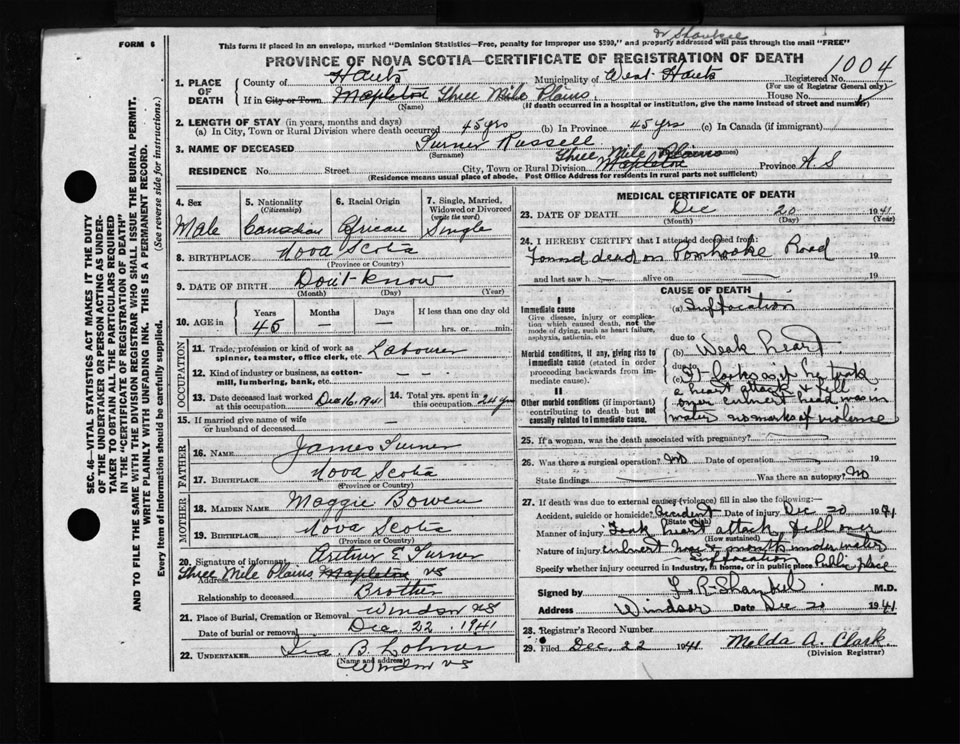 Dr Shankel
FORM 6
This form if placed in an envelope, marked "Dominion Statistics—Free, penalty for improper use $300," and properly addressed will pass through the mail "FREE"
PROVINCE OF NOVA SCOTIA—CERTIFICATE OF REGISTRATION OF DEATH
1. PLACE OF DEATH County of Hants Municipality of West Hants Registered No. 1004
(For use of Registrar General only)
If in City or Town Mapleton Three Mile Plains House No.
(Name) (If death occurred in a hospital or institution, give the name instead of street and number)
2. LENGTH OF STAY (in years, months and days)
(a) In City, Town or Rural Division where death occurred 45 yrs (b) In Province 45 yrs (c) In Canada (if immigrant)
3. NAME OF DECEASED Turner Russell
(Surname)
Three Mile Plains
RESIDENCE No. Street City, Town or Rural Division Mapleton Province N.S
(Residence means usual place of abode. Post Office Address for residents in rural parts not sufficient)
4. Sex Male
5. Nationality (Citizenship) Canadian
6. Racial Origin African
7. Single, Married, Widowed or Divorced (write the word) Single
8. BIRTHPLACE Nova Scotia
(Province or Country)
9. DATE OF BIRTH Don't know
(Month) (Day) (Year)
10. AGE in Years Months Days If less than one day old
45 — — hrs. or min.
OCCUPATION
11. Trade, profession or kind of work as spinner, teamster, office clerk, etc. Labourer
12. Kind of industry or business, as cotton-mill, lumbering, bank, etc. — — —
13. Date deceased last worked at this occupation Dec 16, 1941
14. Total yrs. spent in this occupation 24 yrs
15. If married give name of wife or husband of deceased —
FATHER
16. NAME James Turner
17. BIRTHPLACE Nova Scotia
(Province or Country)
MOTHER
18. MAIDEN NAME Maggie Bowen
19. BIRTHPLACE Nova Scotia
(Province or Country)
20. Signature of informant Arthur E Turner
Address Three Mile Plains Mapleton NS
Relationship to deceased Brother
21. Place of Burial, Cremation or Removal Windsor NS
Date of burial or removal Dec. 22, 1941
22. UNDERTAKER
(Name and address) Windsor NS
MEDICAL CERTIFICATE OF DEATH
23. DATE OF DEATH Dec 20 1941
(Month) (Day) (Year)
24. I HEREBY CERTIFY that I attended deceased from:
Found dead on Ponhooke Road 19
and last saw h alive on 19
CAUSE OF DEATH
I
Immediate cause (a) Suffocation
Give disease, injury or complication which caused death, not the mode of dying, such as heart failure, asphyxia, asthenia, etc
due to
Morbid conditions, if any, giving rise to immediate cause (stated in order proceeding backwards from immediate cause).
(b) Weak heart
due to
(c) It looks as if he took
a heart attack & fell
over culvert head was in
water no marks of violence
II
Other morbid conditions (if important) contributing to death but not causally related to immediate cause.
25. If a woman, was the death associated with pregnancy?
26. Was there a surgical operation? No Date of operation
State findings Was there an autopsy? No
27. If death was due to external causes (violence) fill in also the following:—
Accident, suicide or homicide? Accident Date of injury Dec 20 1941
(State which)
Manner of injury Took heart attack & fell over
(How sustained)
Nature of injury culvert nose & mouth under water
Suffocation
Specify whether injury occurred in industry, in home, or in public place Public place
Signed by R Shankel M.D.
Address Windsor Date Dec 20 1941
28. Registrar's Record Number
29. Filed Dec. 22 1941 Melda A. Clark
(Division Registrar)
SEC. 46—VITAL STATISTICS ACT MAKES IT THE DUTY
OF THE UNDERTAKER OR PERSON ACTING AS UNDER-
TAKER TO OBTAIN ALL THE PARTICULARS REQUIRED
IN THE "CERTIFICATE OF REGISTRATION OF DEATH"
AND TO FILE THE SAME WITH THE DIVISION REGISTRAR WHO SHALL ISSUE THE BURIAL PERMIT.
WRITE PLAINLY WITH UNFADING INK. THIS IS A PERMANENT RECORD.
Every item of information should be carefully supplied. (See reverse side for instructions.)